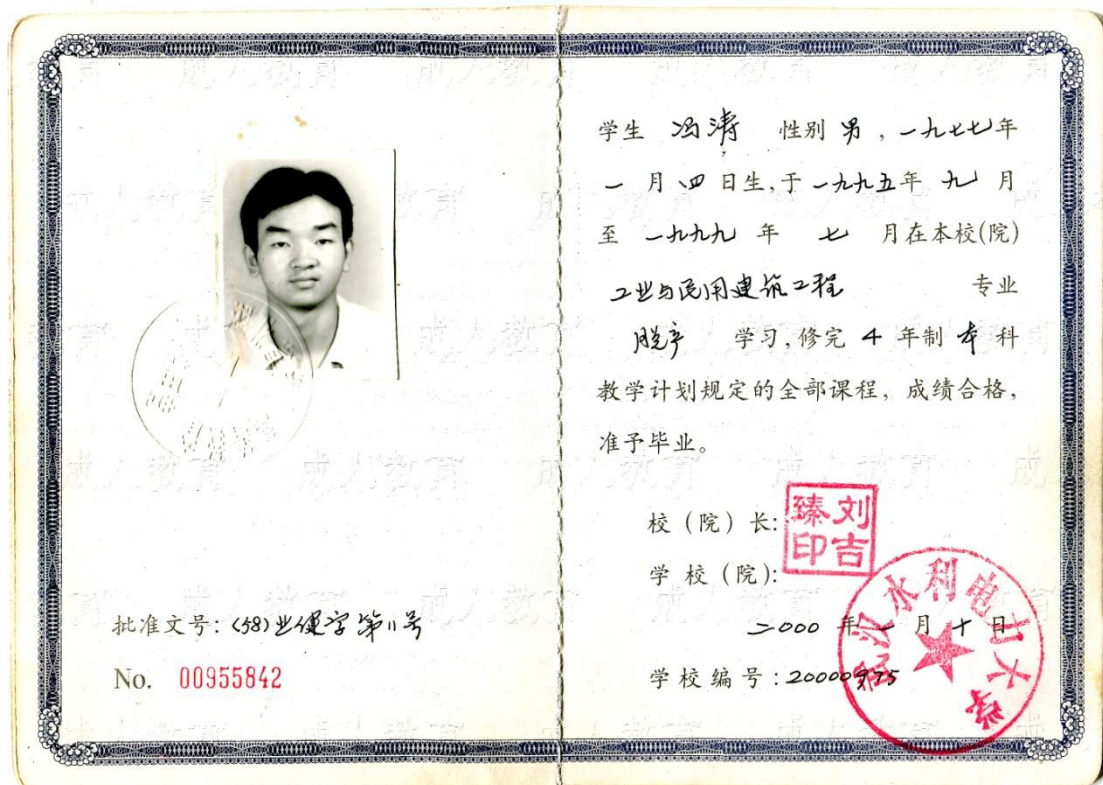 批准文号:(58)业健字第11号
No. 00955842
学生 冯涛 性别 男,一九七七年
一 月 四 日生,于一九九五年 九 月
至 一九九九 年 七 月在本校(院)
工业与民用建筑工程 专业
脱产 学习,修完 4 年制 本 科
教学计划规定的全部课程,成绩合格,
准予毕业。
校(院)长:
刘吉臻印
学校(院):
武汉水利电力大学
二000 年 一 月 十 日
学校编号:20000975
成人教育